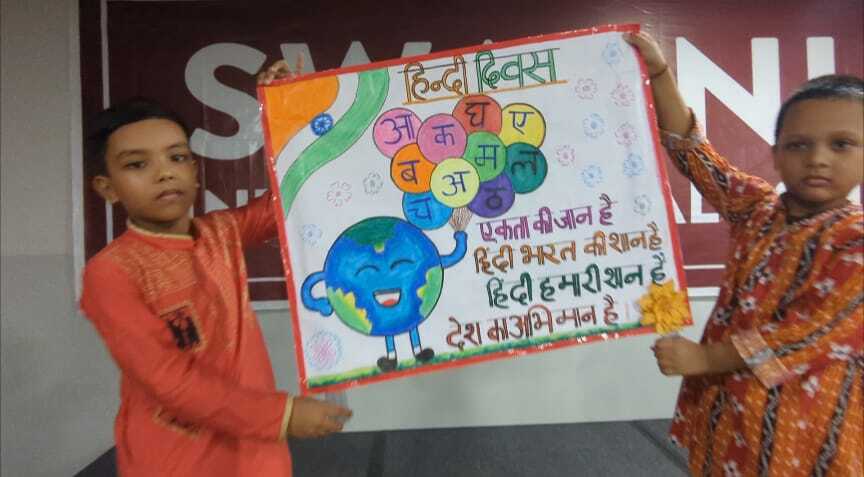 हिन्दी दिवस
आ क घ ए
ब अ म ल
च ठ
एकता की जान है
हिंदी भारत की शान है
हिंदी हमारी शान है
देश का अभिमान है